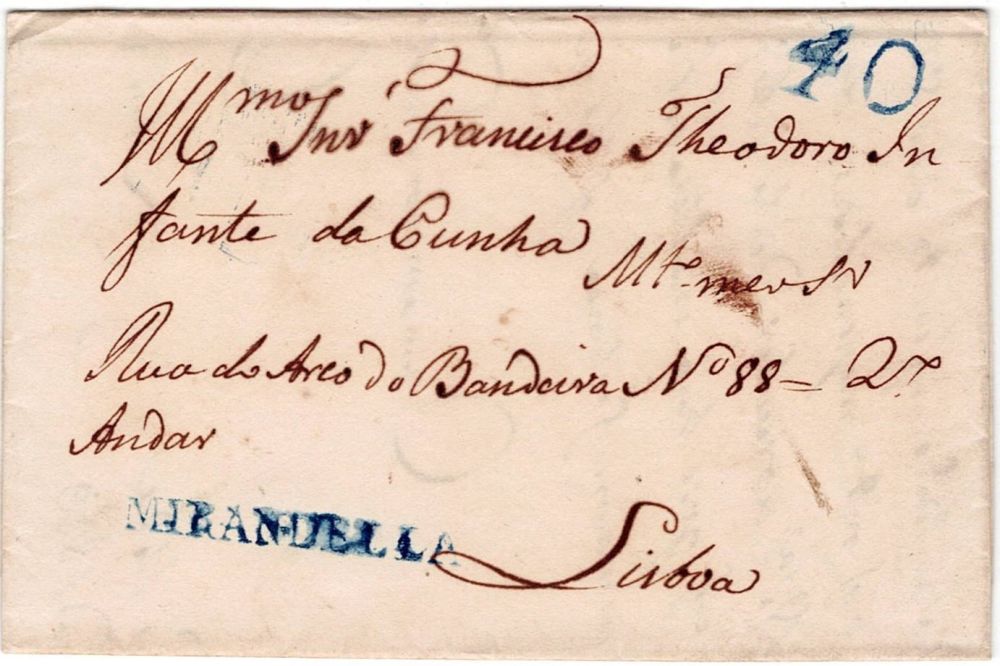 40
Illmo Snr Francisco Theodoro In
fante da Cunha
Mto meu Sr
Rua do Arco do Bandeira No 88 = 2o
Andar
MIRANDELLA
Lisboa